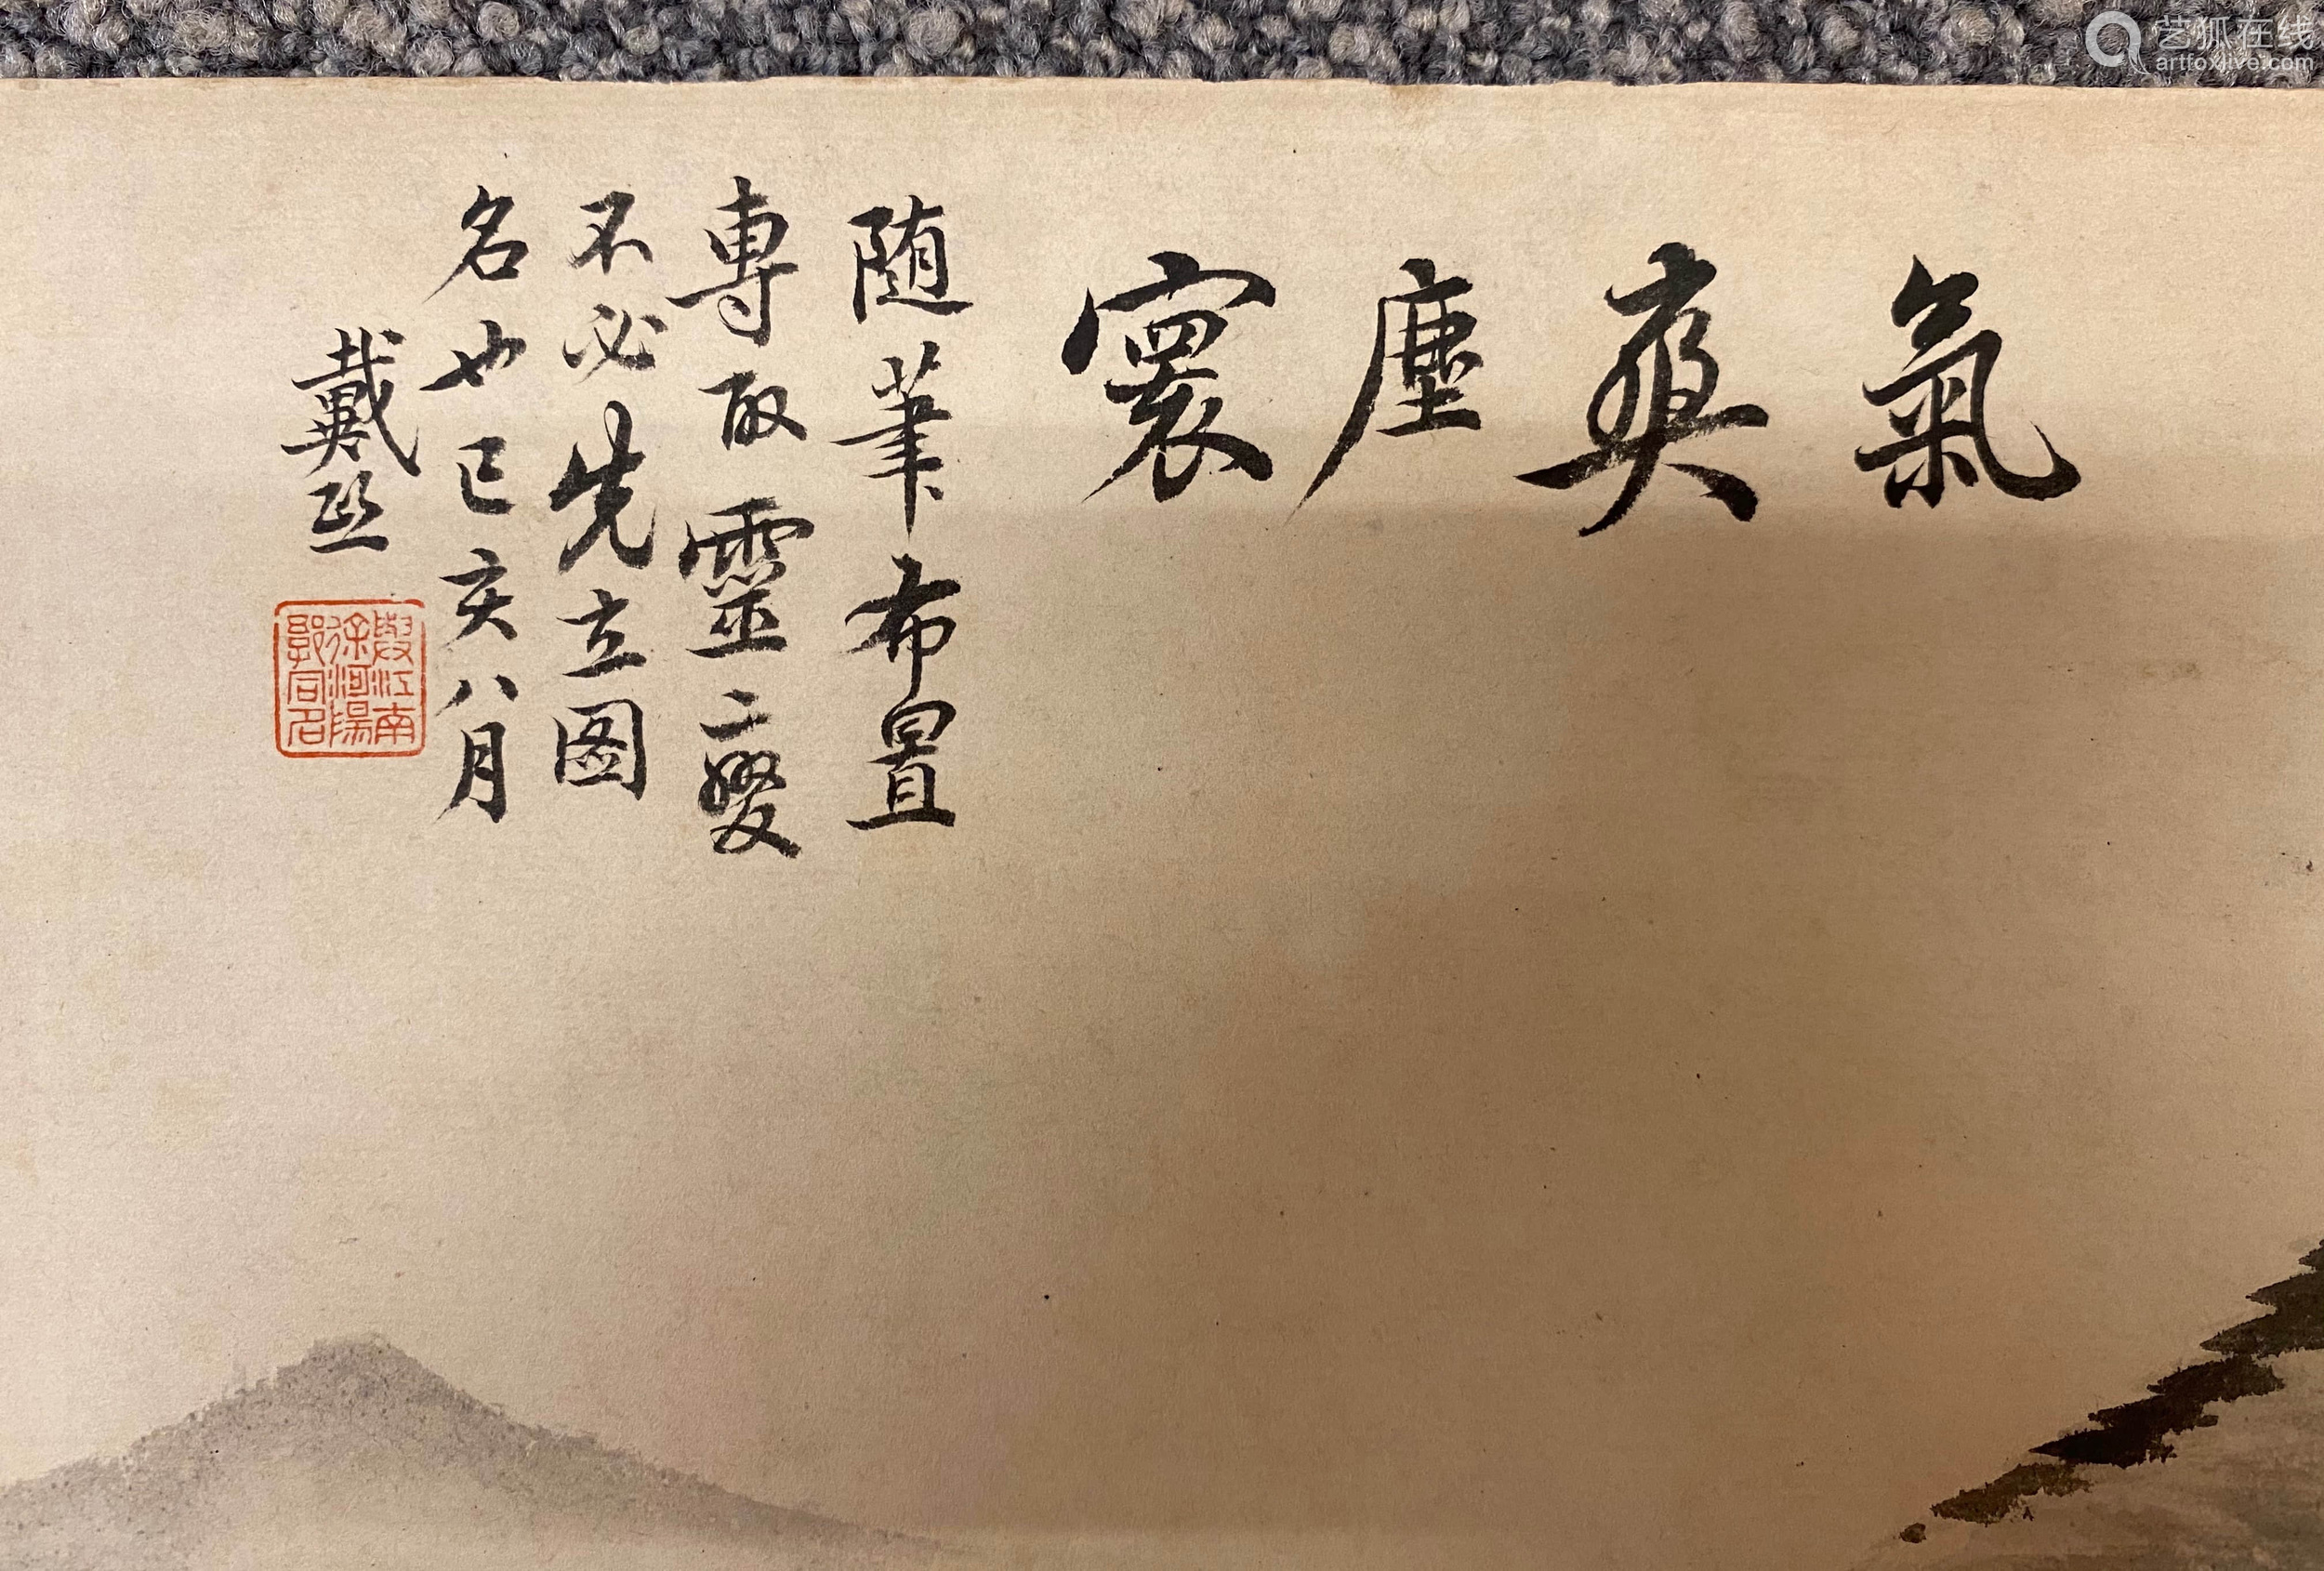 氣夐塵寰
随筆布置
專取靈變
不必先立图
名也己亥八月
戴熙
與江南
徐河陽
郭同名
艺狐在线
artfoxlive.com